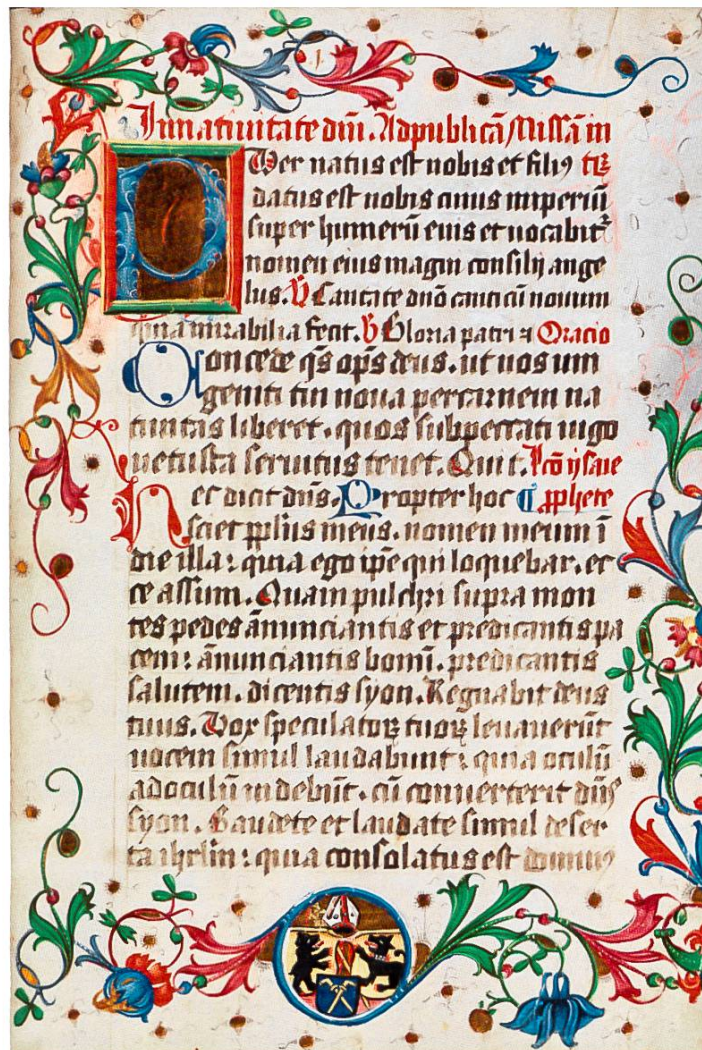 In natiuitate dn̄i. Ad publicā Missā in
Puer natus est nobis et filiꝰ trꝫ
datus est nobis cuius imperiū
super humerū eius et uocabit᷑
nomen eius magni consilij ange
lus. V Cantate dnō canticū nouum
quia mirabilia fecit. V Gloria patri ⁊ Oracio
Concede q̄s op̄s deus. ut nos um
geniti tui noua per carnem na
tiuitas liberet. quos sub peccati iugo
uetusta seruitus tenet. Qui t. Lcō ysaie
Hec dicit dn̄s. Propter hoc ꝓphete
sciet ppl̄us meus. nomen meum ī
die illa: quia ego ip̄e qui loquebar. ec
ce assum. Quam pulchri supra mon
tes pedes ānunciantis et predicantis pa
cem: ānunciantis bonū. predicantis
salutem. dicentis syon. Regnabit deus
tuus. Vox speculatoꝝ tuoꝝ leuauerūt
uocem simul laudabunt: quia oculū
ad oculū uidebūt. cū conuerterit dn̄s
syon. Gaudete et laudate simul deser
ta ihrl̄m: quia consolatus est dominꝰ